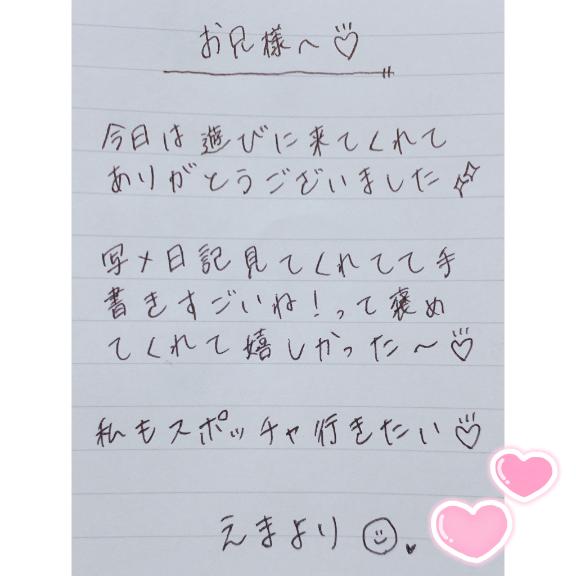 お兄様へ♡
今日は遊びに来てくれて
ありがとうございました
写メ日記見てくれてて手
書きすごいね!って褒め
てくれて嬉しかった〜♡
私もスポッチャ行きたい♡
えまより